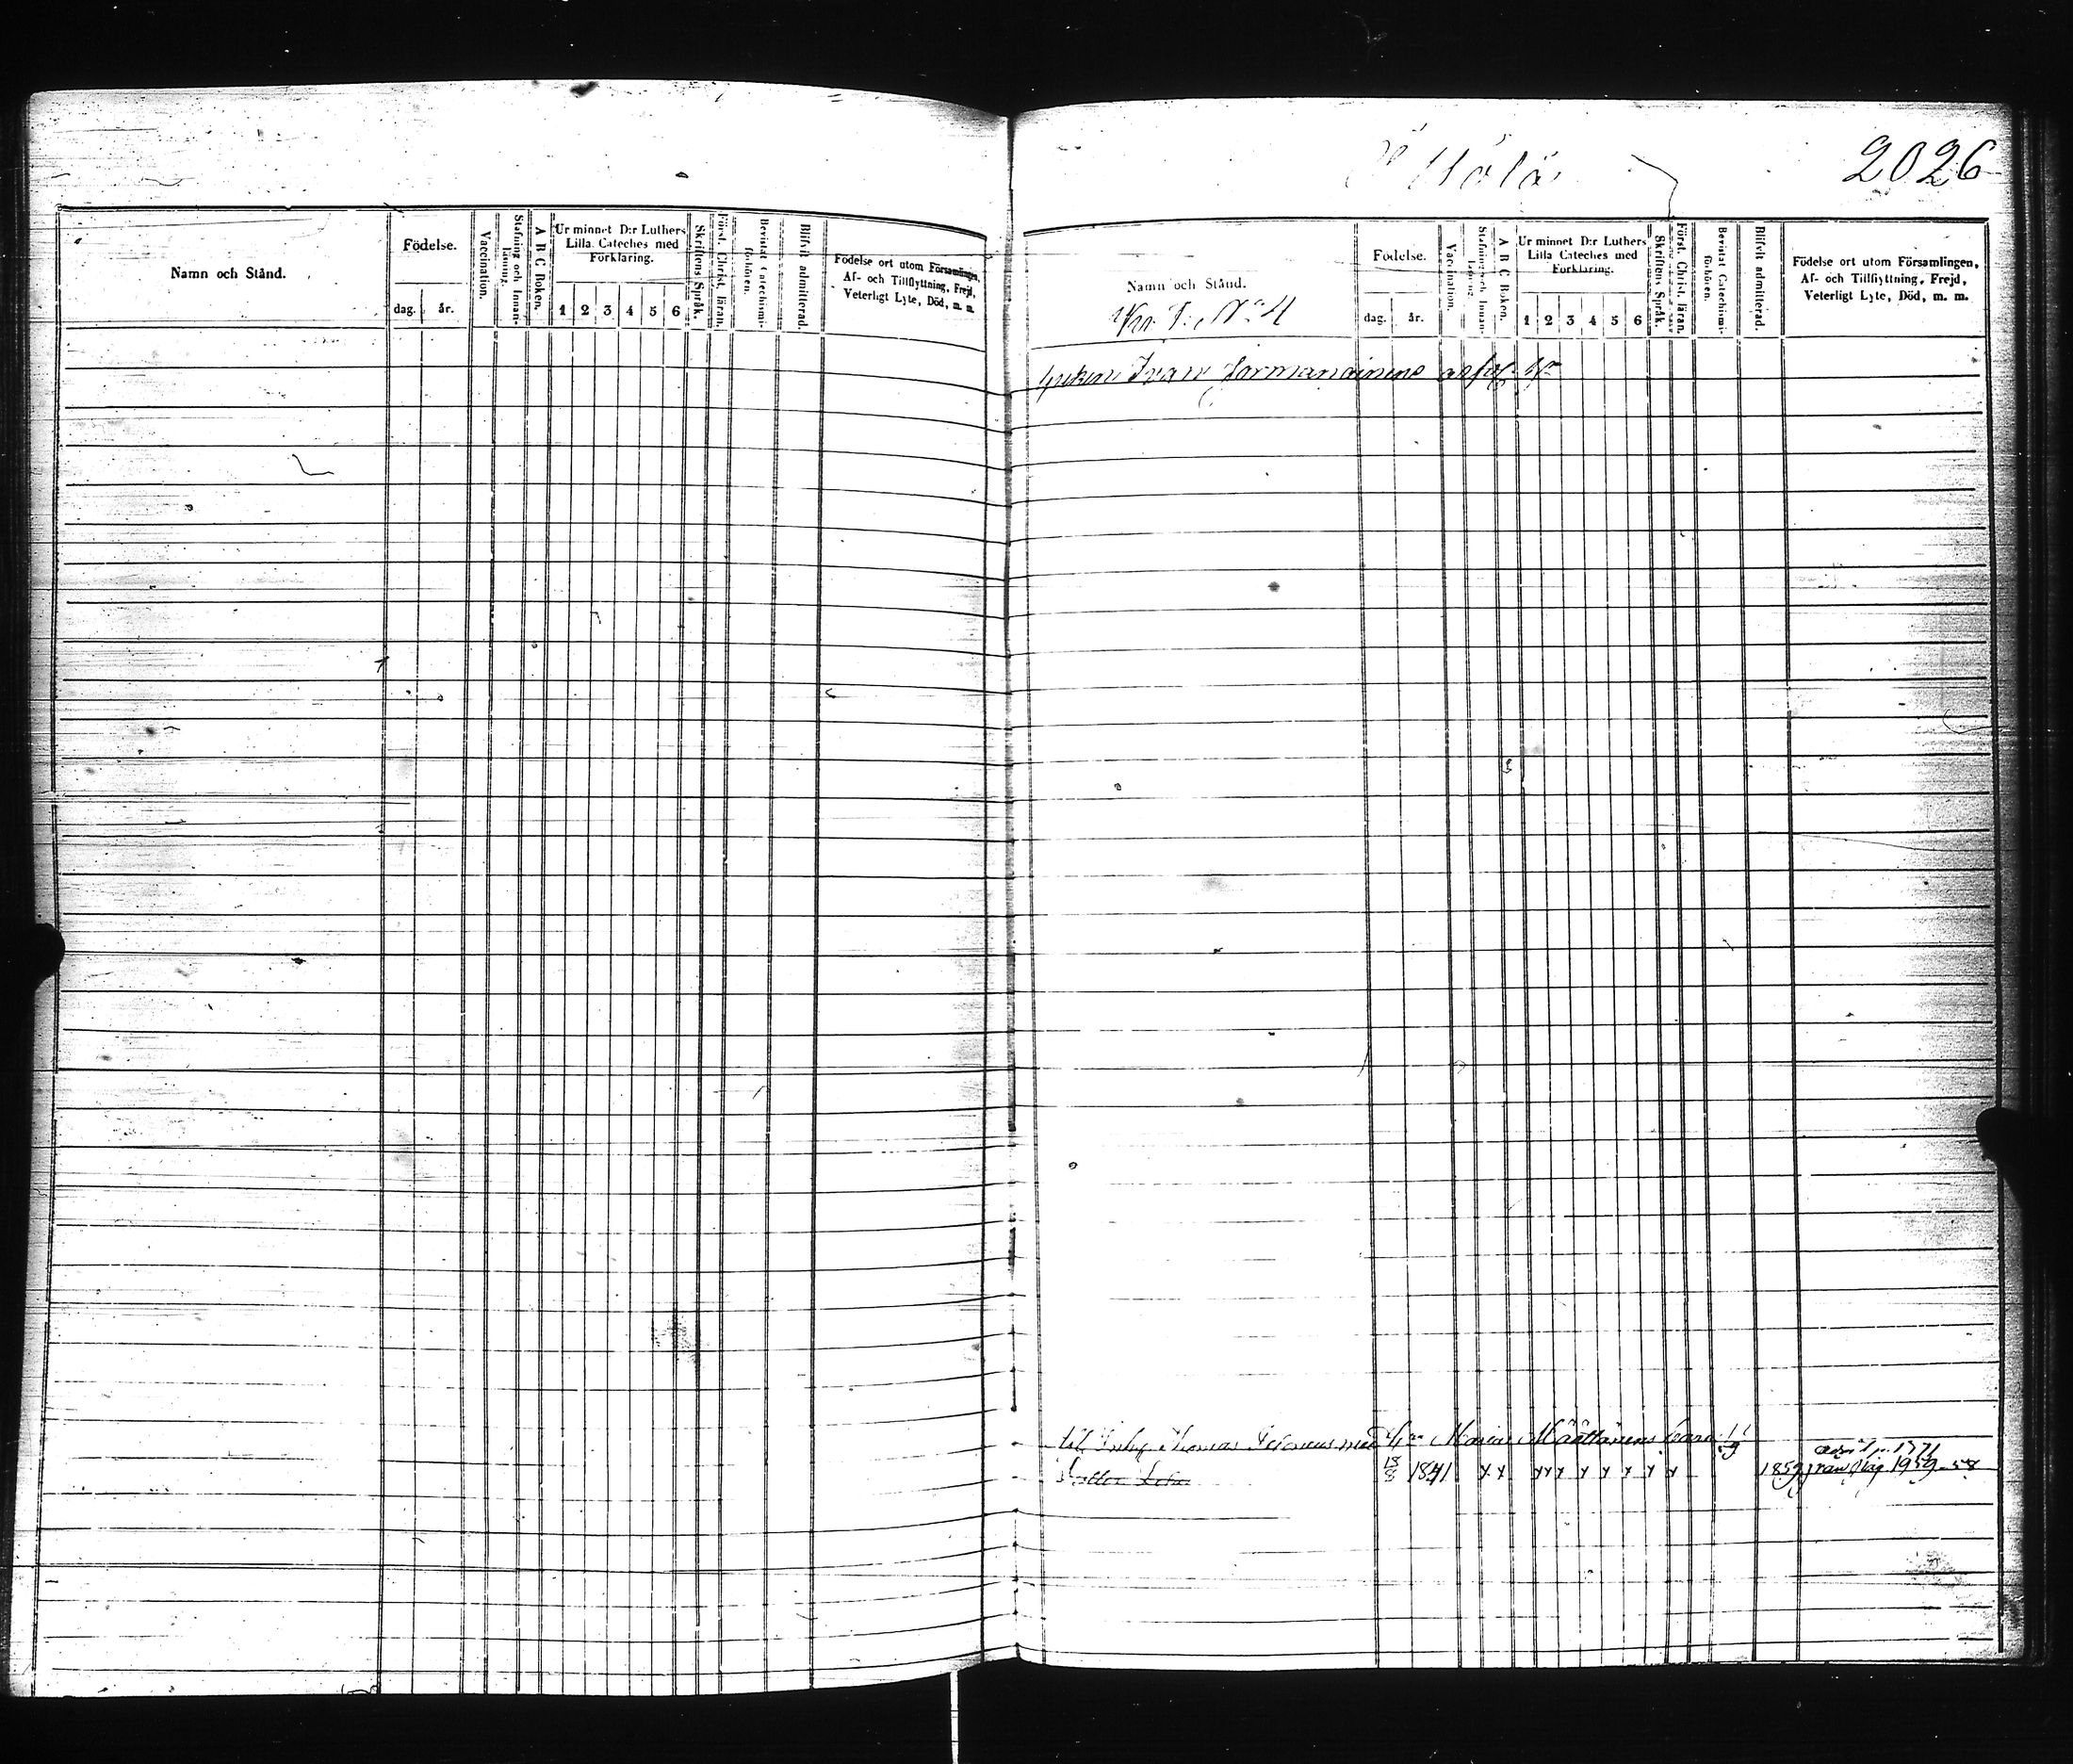 Namn och Stånd.
Födelse.
dag.
år.
Vaccination.
Stafning och Innan-
läsning.
A B C Boken.
Ur minnet D:r Luthers
Lilla Cateches med
Förklaring.
1 2 3 4 5 6
Skriftens Språk.
Först. Christ. läran.
Bevistat Catechismi-
förhören.
Blifvit admitterad.
Födelse ort utom Församlingen,
Af- och Tillflyttning, Frejd,
Veterligt Lyte, Död, m. m.
2026
Namn och Stånd.
N:o 4
Födelse.
dag.
år.
Vaccination.
Stafning och Innan-
läsning.
A B C Boken.
Ur minnet D:r Luthers
Lilla Cateches med
Förklaring.
1 2 3 4 5 6
Skriftens Språk.
Först. Christ. läran.
Bevistat Catechismi-
förhören.
Blifvit admitterad.
Födelse ort utom Församlingen,
Af- och Tillflyttning, Frejd,
Veterligt Lyte, Död, m. m.
Ivan Jormanainens
Inh. Thomas Maria Määttänens barn
adr. p. 1771
Dotter Lena 18/8 1841 x x x x x x x x x x 1859 från pag. 1959 - 58